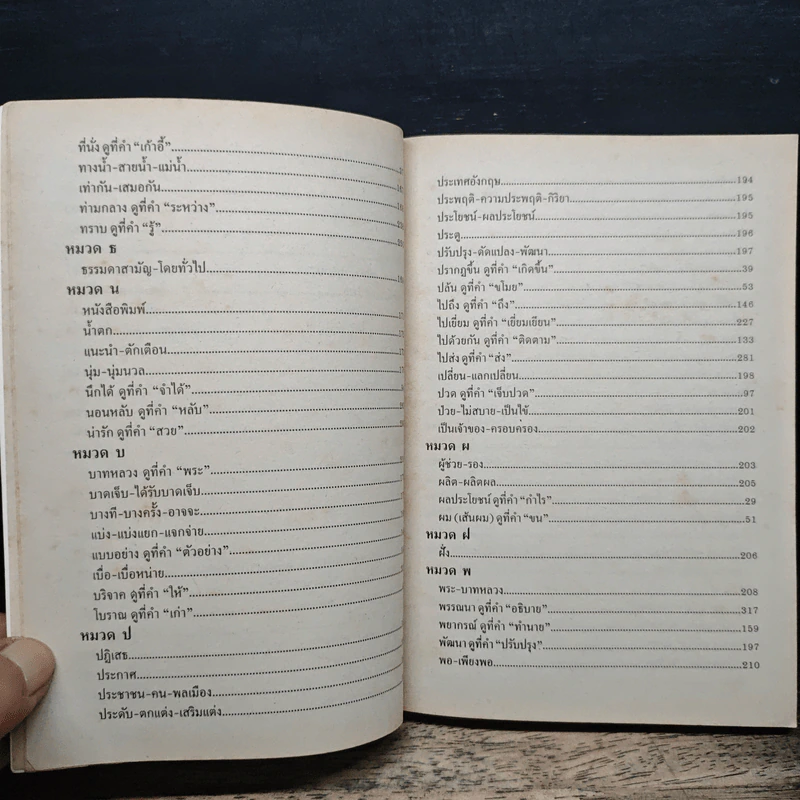 ที่นั่ง ดูที่คำ “เก้าอี้”
ทางน้ำ-สายน้ำ-แม่น้ำ
เท่ากัน-เสมอกัน
ท่ามกลาง ดูที่คำ “ระหว่าง”
ทราบ ดูที่คำ “รู้”
หมวด ธ
ธรรมดาสามัญ-โดยทั่วไป
หมวด น
หนังสือพิมพ์
น้ำตก
แนะนำ-ตักเตือน
นุ่ม-นุ่มนวล
นึกได้ ดูที่คำ “จำได้”
นอนหลับ ดูที่คำ “หลับ”
น่ารัก ดูที่คำ “สวย”
หมวด บ
บาทหลวง ดูที่คำ “พระ”
บาดเจ็บ-ได้รับบาดเจ็บ
บางที-บางครั้ง-อาจจะ
แบ่ง-แบ่งแยก-แจกจ่าย
แบบอย่าง ดูที่คำ “ตัวอย่าง”
เบื่อ-เบื่อหน่าย
บริจาค ดูที่คำ “ให้”
โบราณ ดูที่คำ “เก่า”
หมวด ป
ปฏิเสธ
ประกาศ
ประชาชน-คน-พลเมือง
ประดับ-ตกแต่ง-เสริมแต่ง
ประเทศอังกฤษ 194
ประพฤติ-ความประพฤติ-กิริยา 195
ประโยชน์-ผลประโยชน์ 195
ประตู 196
ปรับปรุง-ดัดแปลง-พัฒนา 197
ปรากฏขึ้น ดูที่คำ “เกิดขึ้น” 39
ปล้น ดูที่คำ “ขโมย” 53
ไปถึง ดูที่คำ “ถึง” 146
ไปเยี่ยม ดูที่คำ “เยี่ยมเยียน” 227
ไปด้วยกัน ดูที่คำ “ติดตาม” 133
ไปส่ง ดูที่คำ “ส่ง” 281
เปลี่ยน-แลกเปลี่ยน 198
ปวด ดูที่คำ “เจ็บปวด” 97
ป่วย-ไม่สบาย-เป็นไข้ 201
เป็นเจ้าของ-ครอบครอง 202
หมวด ผ
ผู้ช่วย-รอง 203
ผลิต-ผลิตผล 205
ผลประโยชน์ ดูที่คำ “กำไร” 29
ผม (เส้นผม) ดูที่คำ “ขน” 51
หมวด ฝ
ฝั่ง 206
หมวด พ
พระ-บาทหลวง 208
พรรณนา ดูที่คำ “อธิบาย” 317
พยากรณ์ ดูที่คำ “ทำนาย” 159
พัฒนา ดูที่คำ “ปรับปรุง” 197
พอ-เพียงพอ 210